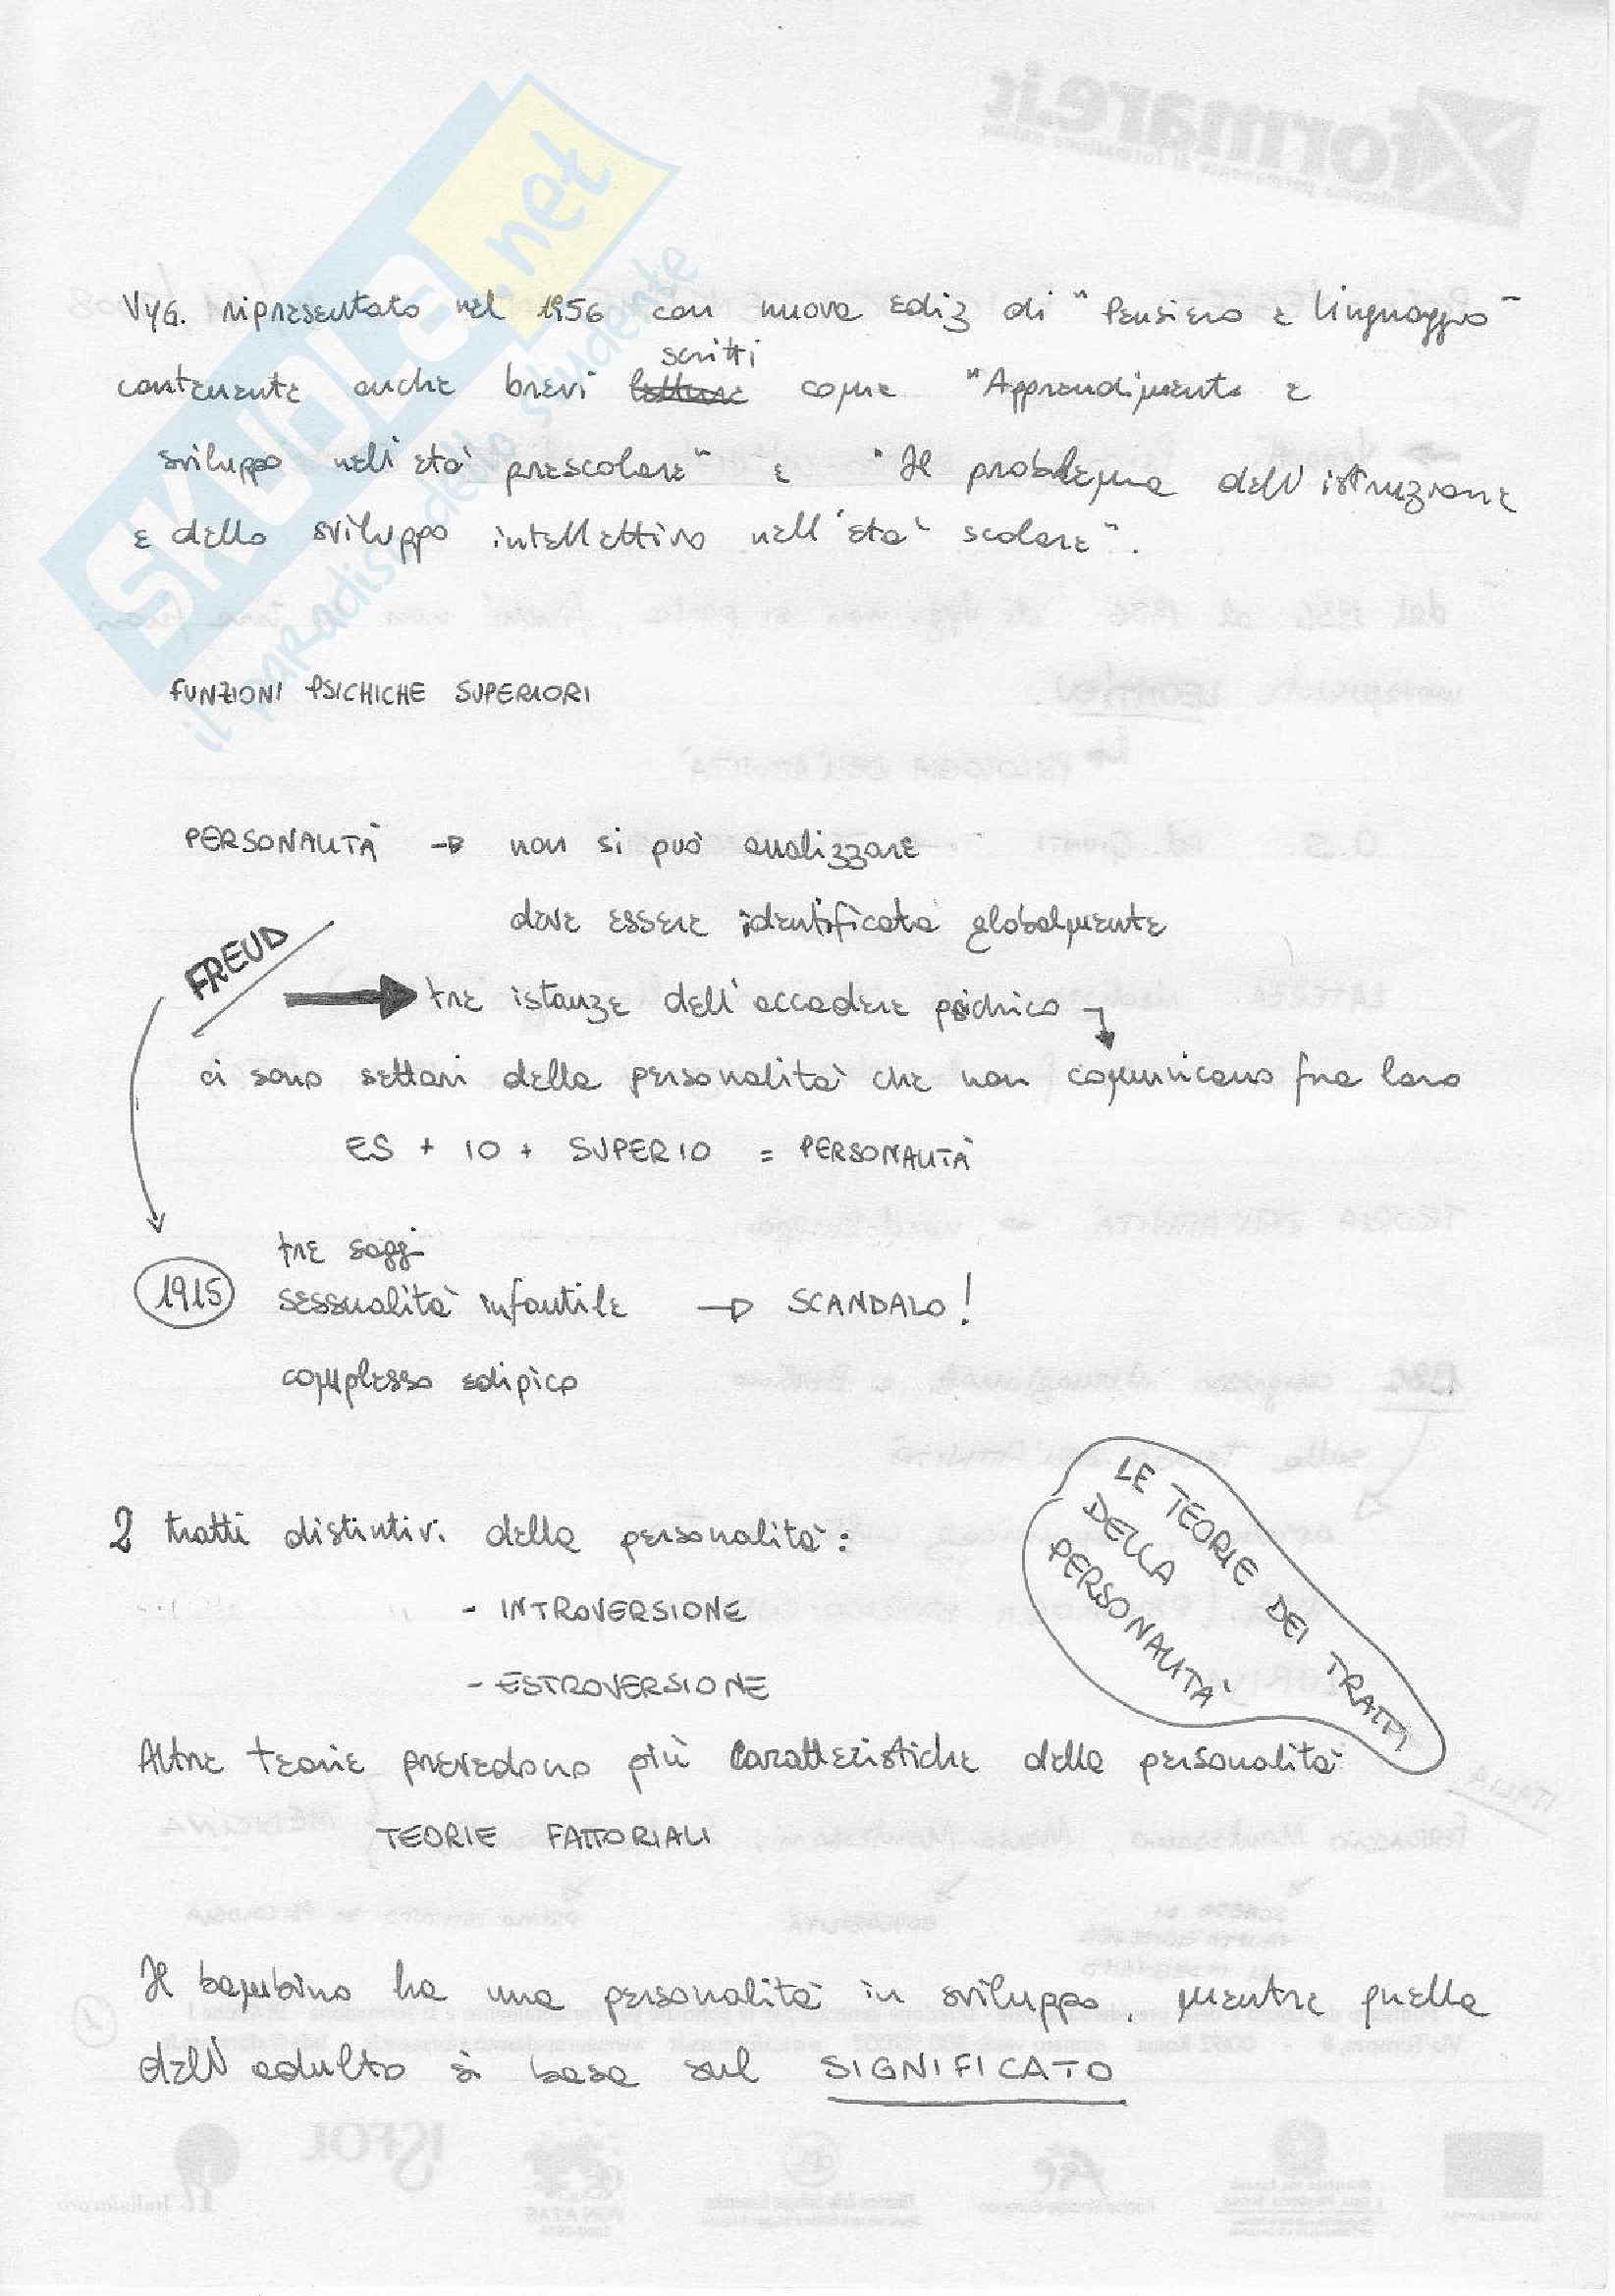 SKUOLA.net
il paradiso dello studente
Xformare.it
Vyg. ripresentato nel 1956 con nuova ediz di "Pensiero e linguaggio"
scritti
contenente anche brevi letture come "Apprendimento e
sviluppo nell'età prescolare" e "Il problema dell'istruzione
e dello sviluppo intellettivo nell'età scolare".
FUNZIONI PSICHICHE SUPERIORI
PERSONALITÀ → non si può analizzare
deve essere identificata globalmente
FREUD
→ tre istanze dell'accadere psichico
ci sono settori della personalità che non comunicano fra loro
ES + IO + SUPERIO = PERSONALITÀ
tre saggi
1915 sessualità infantile → SCANDALO!
complesso edipico
LE TEORIE DEI TRATTI
DELLA
PERSONALITÀ
2 tratti distintivi della personalità:
- INTROVERSIONE
- ESTROVERSIONE
Altre teorie prevedono più caratteristiche della personalità
TEORIE FATTORIALI
Il bambino ha una personalità in sviluppo, mentre quella
dell'adulto si basa sul SIGNIFICATO
ISFOL